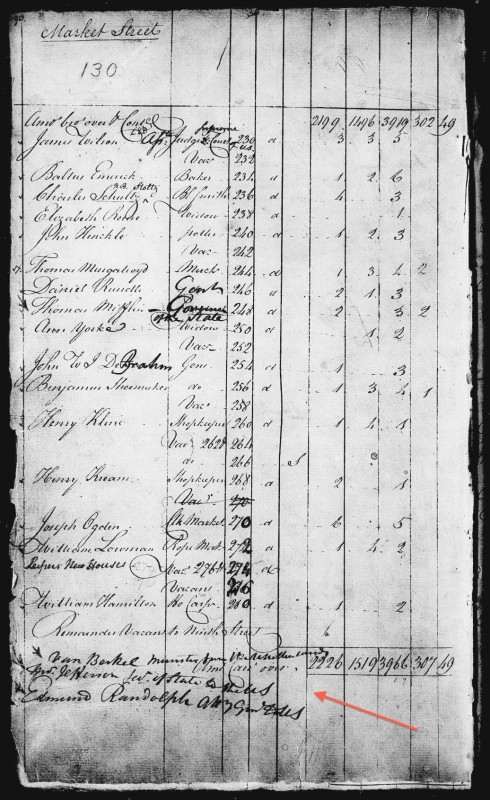 Market Street
130
Amo. bro over 2199 1496 3919 302 49
James Wilson Judge Supreme Court of US 230 d 3 3 5
Vac 232
Baltus Emrick Baker 234 d 1 2 6
Charles Schultz Bl Smith 236 d 4 3
Elizabeth Rowe Widow 238 d 1
John Hinckle potter 240 d 1 2 3
Vac 242
Thomas Murgatroyd Mercht 244 d 1 3 4 2
Daniel Gent 246 d 2 1 3
Thomas Mifflin Governor of the State 248 d 2 3 2
Ann Yorke Widow 250 d 1 2
Vac 252
John W I De Brahm Gen 254 d 1 3
Benjamin Shoemaker do 256 d 1 3 4 1
Vac 258
Henry Kline Shopkeeper 260 d 1 4 1
Vac 262 & 264
do 266 S
Henry Shopkeeper 268 d 2 1
Vac 270
Joseph Ogden Market 270 d 6 5
William Lowman 272 d 1 4 2
New Houses Vac 276 & 274 d
Vacant 276
William Hamilton Ho Carpr 280 d 1 2
Remainder Vacant to Ninth Street 6
Van Berkel Minister from the Netherlands
Amo carr over 2226 1519 3966 307 49
Mr. Jefferson Sec. of State to the US
Edmund Randolph Atty Genl US